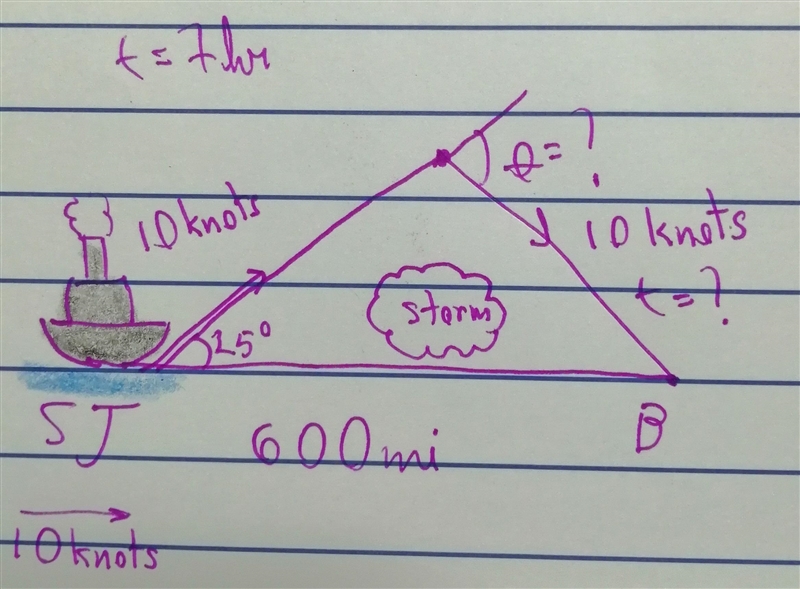 t = 7 hr
θ = ?
10 knots
10 knots
t = ?
storm
25°
SJ
B
600 mi
10 knots